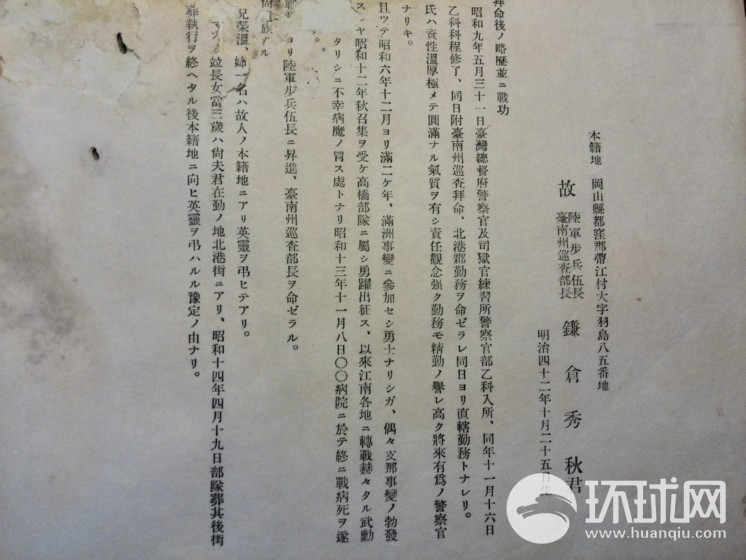 本籍地　岡山縣都窪郡帶江村大字羽島八五番地
故　陸軍步兵伍長
臺南州巡查部長　鎌倉秀秋君
明治四十二年十月二十五日生
拜命後ノ略歷並ニ戰功
昭和九年五月三十一日臺灣總督府警察官及司獄官練習所警察官部乙科入所、同年十一月十六日
乙科科程修了、同日附臺南州巡查拜命、北港郡勤務ヲ命ゼラレ同日ヨリ直轄勤務トナレリ。
氏ハ資性溫厚極メテ圓滿ナル氣質ヲ有シ責任觀念强ク勤務モ精勤ノ譽レ高ク將來有爲ノ警察官
ナリキ。
且ツテ昭和六年十二月ヨリ滿二ケ年、滿洲事變ニ參加セシ勇士ナリシガ、偶々支那事變ノ勃發
スルヤ昭和十二年秋召集ヲ受ケ高橋部隊ニ屬シ勇躍出征ス、以來江南各地ニ轉戰赫々タル武勳
タリシニ不幸病魔ノ冒ス處トナリ昭和十三年十一月八日〇〇病院ニ於テ終ニ戰病死ヲ遂
。
ヨリ陸軍步兵伍長ニ昇進、臺南州巡查部長ヲ命ゼラル。
族
兄榮溫、姉一名ハ故人ノ本籍地ニアリ英靈ヲ弔ヒテアリ。
長女當三歲ハ尙夫君在勤ノ地北港街ニアリ、昭和十四年四月十九日部隊葬其後街
葬執行ヲ終ヘタル後本籍地ニ向ヒ英靈ヲ弔ハルル豫定ノ由ナリ。
环球网
www.huanqiu.com